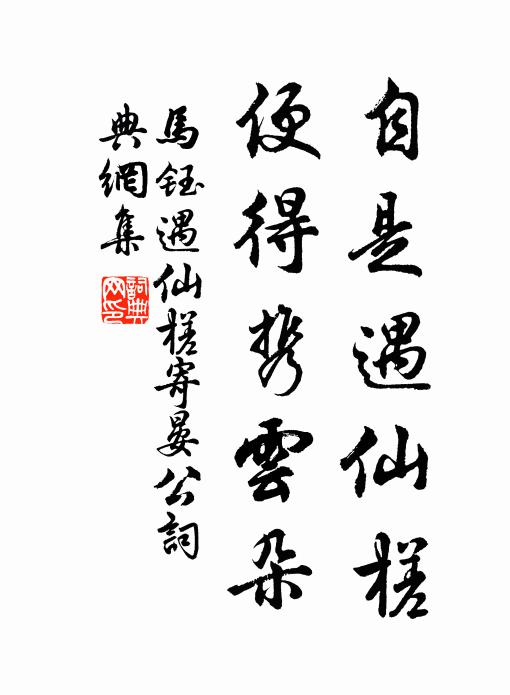 自是遇仙槎
便得携雲朵
馬鈺遇仙槎寄晏公詞
典網集
詞典網印